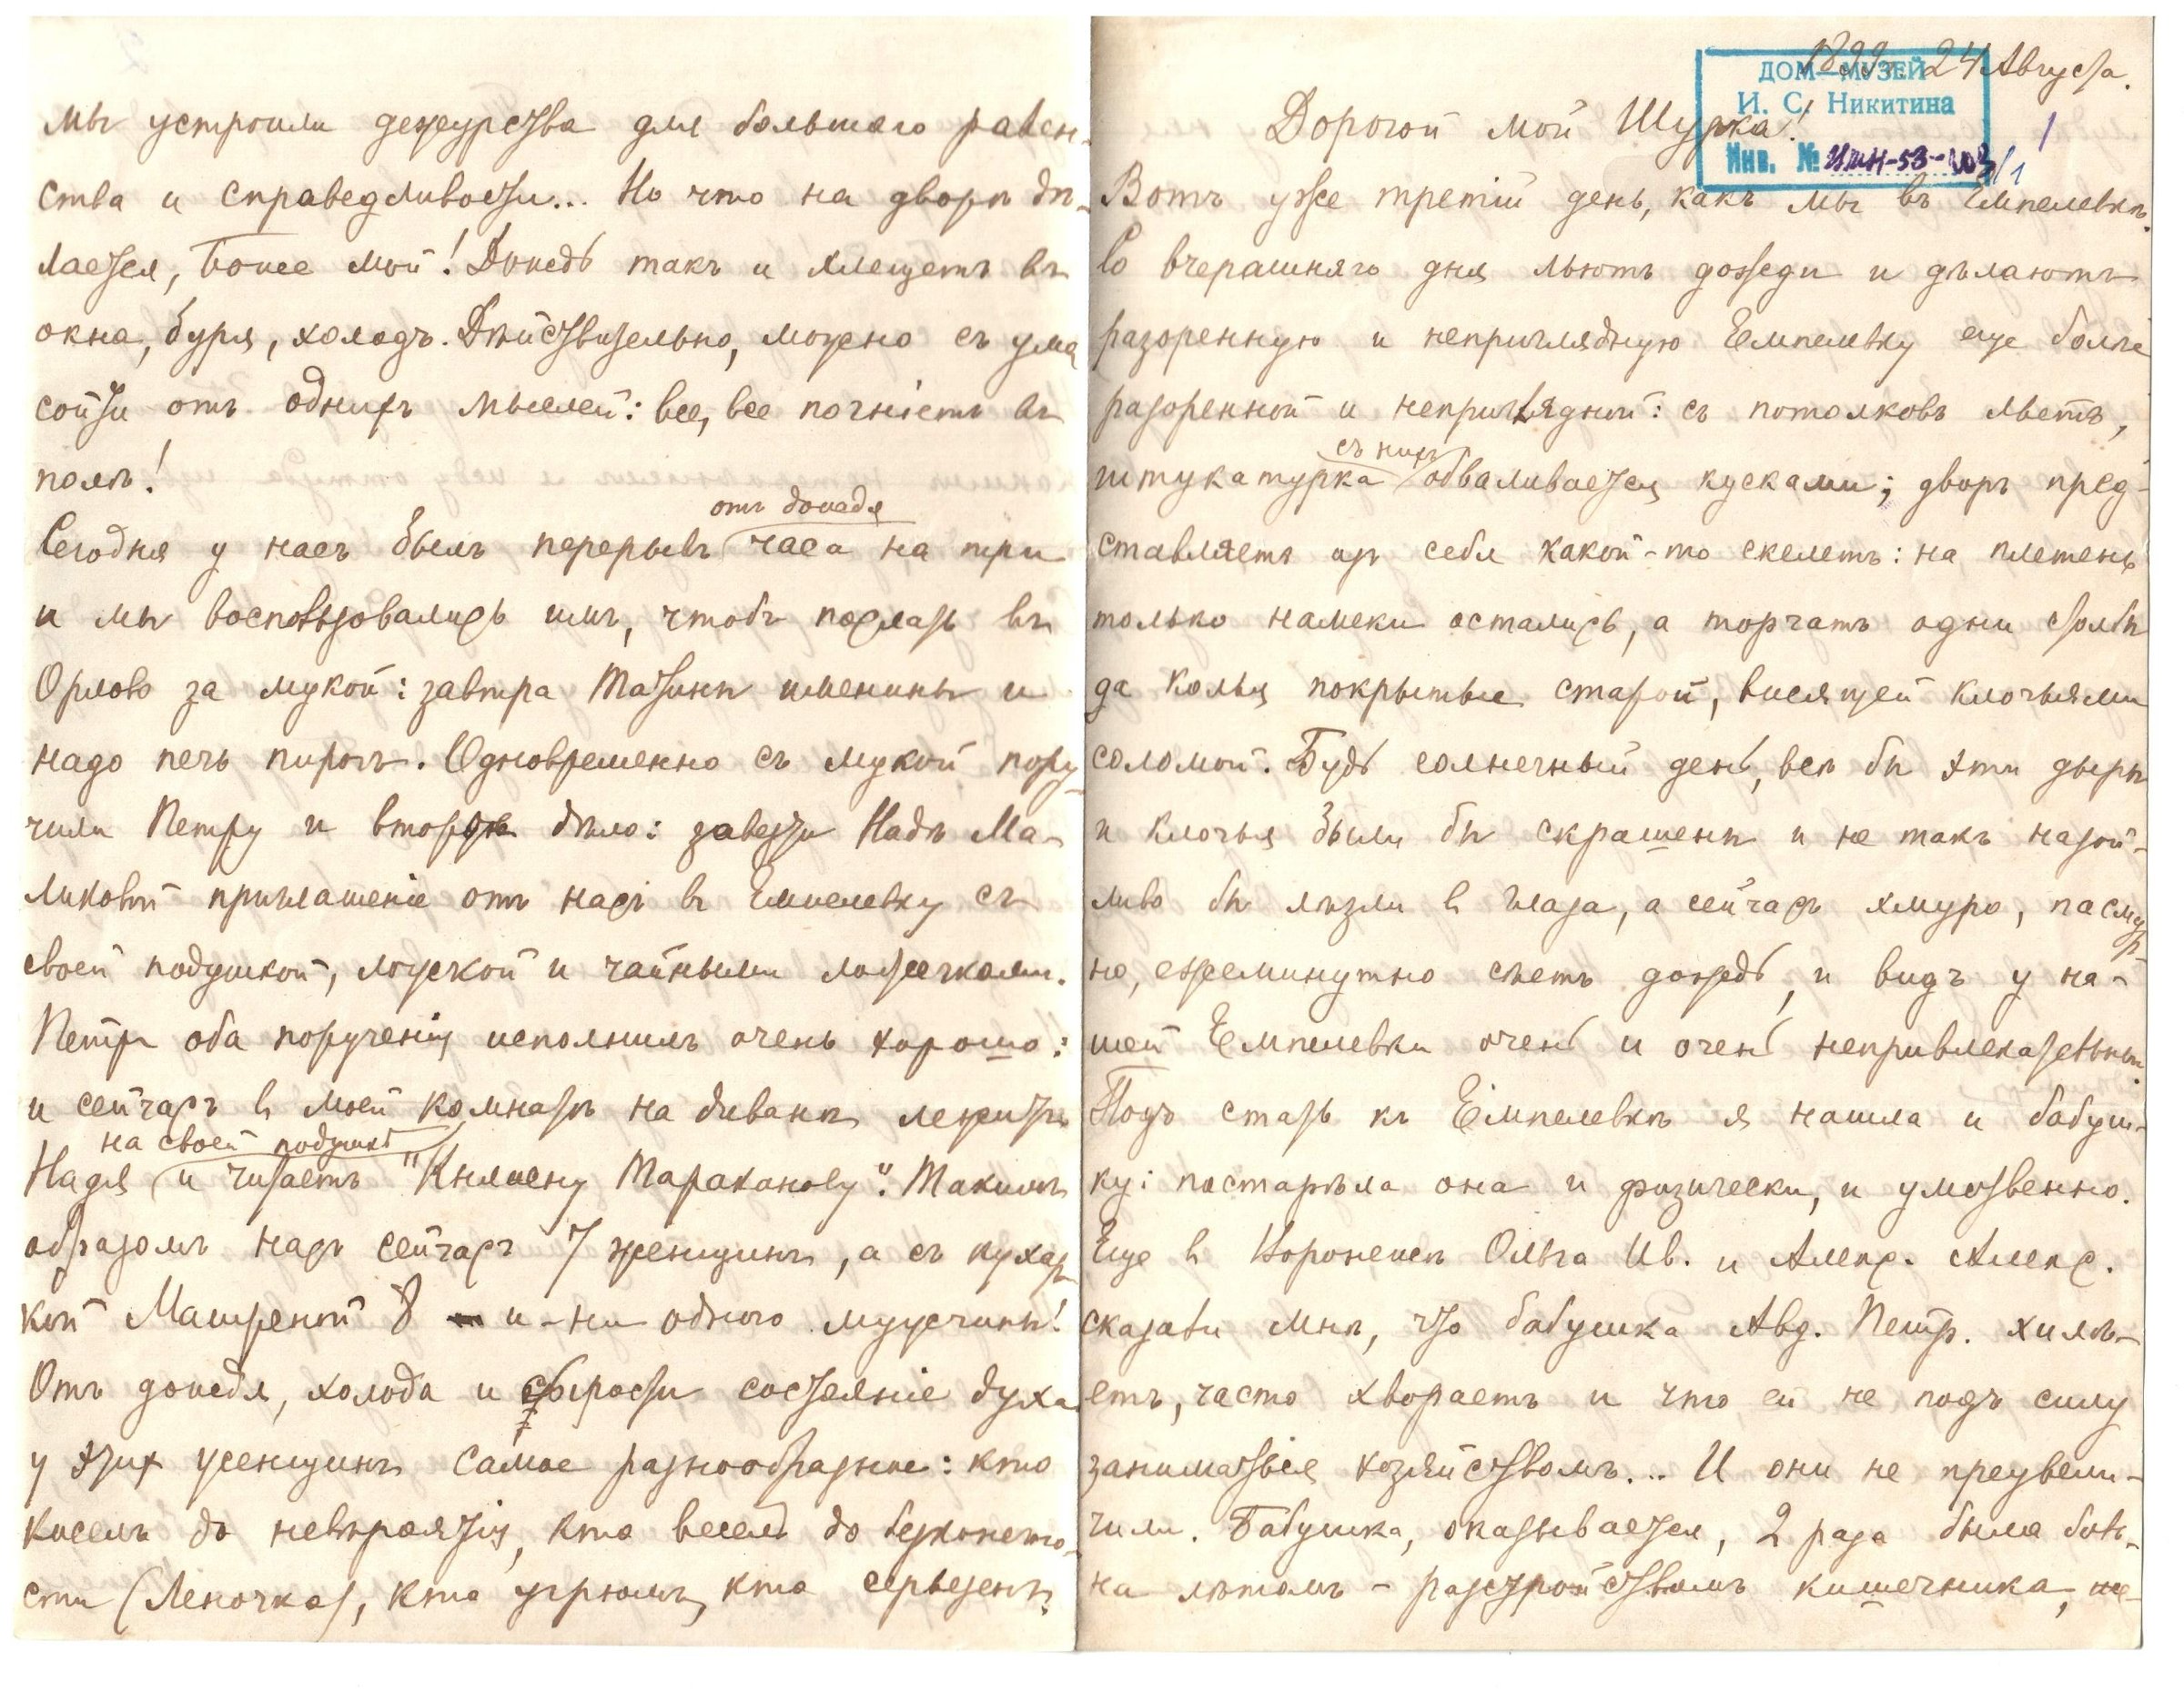 мы устроили дежурства для большаго равен-
ства и справедливости... Но что на дворѣ дѣ-
лается, Боже мой! Дождь такъ и хлещетъ въ
окна, буря, холодъ. Дѣйствительно, можно съ ума
сойти отъ однихъ мыслей: все, все погніетъ въ
полѣ!
отъ дождя
Сегодня у насъ былъ перерывъ часа на три
и мы воспользовались имъ, чтобъ послать въ
Орлово за мукой: завтра Татинъ именины и
надо печь пирогъ. Одновременно съ мукой пору-
чили Петру и второе дѣло: завезти Надѣ Ма-
ликовой приглашеніе отъ насъ въ Емпелевку съ
своей подушкой, ложкой и чайными ложечками.
Петръ оба порученія исполнилъ очень хорошо:
и сейчасъ в моей комнатѣ на диванѣ лежитъ
на своей подушкѣ
Надя и читаетъ "Княжну Тараканову". Такимъ
образомъ насъ сейчасъ 7 женщинъ, а съ кухар-
кой Матреной 8 и - ни одного мужчины!
Отъ дождя, холода и сырости состояніе духа
у этих женщинъ самое разнообразное: кто
киселъ до невѣроятія, кто веселъ до безконечно-
сти (Леночка), кто угрюмъ, кто серьезенъ.
1899 г. 24 Августа.
ДОМ-МУЗЕЙ
И. С. Никитина
Инв. №
1
Дорогой мой Шурка!
Вотъ уже третій день, какъ мы въ Емпелевкѣ.
Со вчерашняго дня льютъ дожди и дѣлаютъ
разоренную и неприглядную Емпелевку еще болѣе
разоренной и неприглядной: съ потолковъ льетъ,
съ нихъ
штукатурка обваливается кусками; дворъ пред-
ставляетъ изъ себя какой-то скелетъ: на плетень
только намеки остались, а торчатъ одни столбы
да колья покрытые старой, висящей клочьями
соломой. Будь солнечный день, всѣ бы эти дыры
и клочья были бы скрашены и не такъ назой-
ливо бы лѣзли в глаза, а сейчасъ хмуро, пасмур-
но, ежеминутно сѣетъ дождь, и видъ у на-
шей Емпелевки очень и очень непривлекательный.
Подъ стать къ Емпелевкѣ я нашла и бабуш-
ку: постарѣла она и физически, и умственно.
Еще в Воронежѣ Ольга Ив. и Алекс. Алекс.
сказали мнѣ, что бабушка Авд. Петр. хилѣ-
етъ, часто хвораетъ и что ей не подъ силу
заниматься хозяйствомъ... И они не преувели-
чили. Бабушка, оказывается, 2 раза была боль-
на лѣтомъ - разстройствомъ кишечника, же-